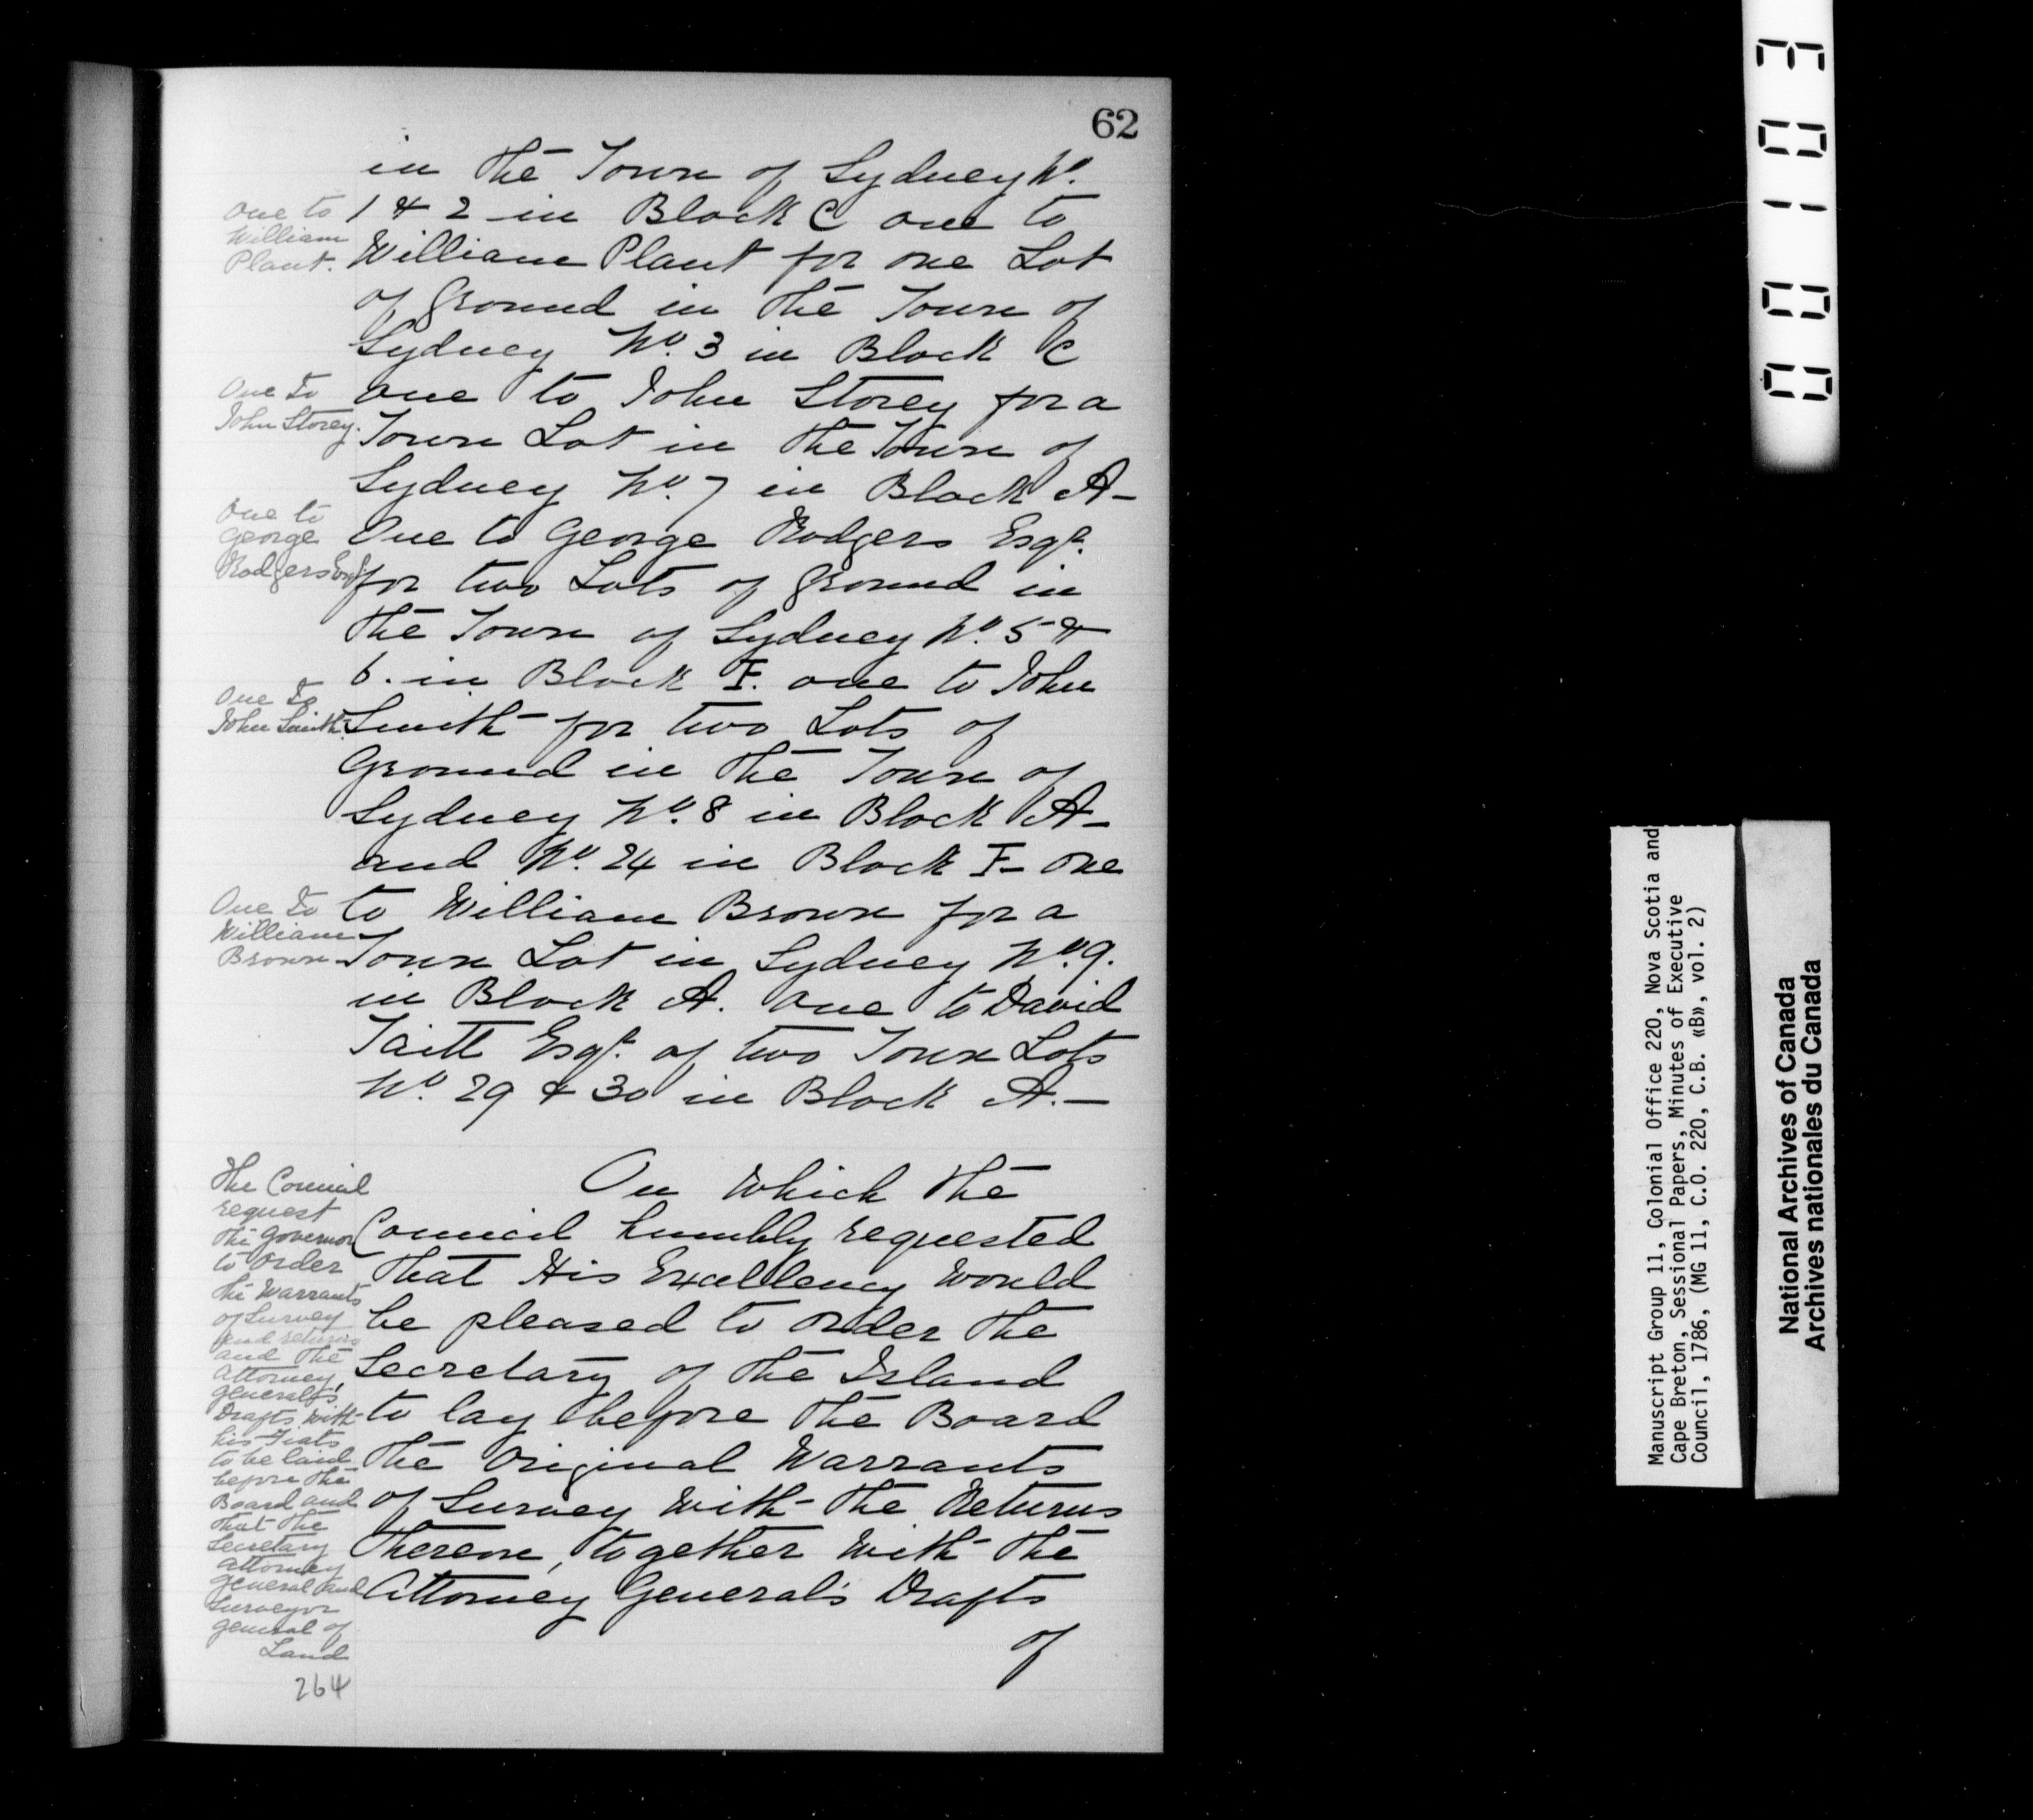 62
in the Town of Sydney No.
1 & 2 in Block C one to
William Plant for one Lot
of ground in the Town of
Sydney No. 3 in Block C
one to John Storey for a
Town Lot in the Town of
Sydney No. 7 in Block A—
One to George Rodgers Esqr.
for two Lots of ground in
the Town of Sydney No. 5 &
6. in Block F. one to John
Smith for two Lots of
Ground in the Town of
Sydney No. 8 in Block A—
and No. 24 in Block F— one
to William Brown for a
Town Lot in Sydney No. 9.
in Block A. one to David
Taitt Esqr. of two Town Lots
No. 29 & 30 in Block A.—
On which the
Council humbly requested
that His Excellency would
be pleased to order the
Secretary of the Island
to lay before the Board
the Original Warrants
of Survey with the Returns
thereon, together with the
Attorney General's Drafts
of
one to
William
Plant.
One to
John Storey.
One to
George
Rodgers Esqr.
One to
John Smith.
One to
William
Brown
The Council
request
the Governor
to order
the Warrants
of Survey
and returns
and the
Attorney
general's
Drafts with
his Fiats
to be laid
before the
Board and
that the
Secretary
Attorney
general and
Surveyor
general of
Land
264
00103
Manuscript Group 11, Colonial Office 220, Nova Scotia and
Cape Breton, Sessional Papers, Minutes of Executive
Council, 1786, (MG 11, C.O. 220, C.B. «B», vol. 2)
National Archives of Canada
Archives nationales du Canada